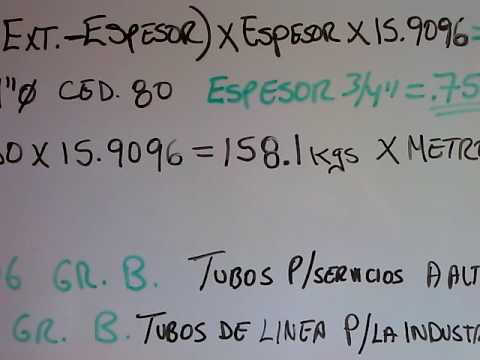 EXT. - ESPESOR) X ESPESOR X 15.9096 =
"Ø CED. 80 ESPESOR 3/4" = .75
0 X 15.9096 = 158.1 Kgs X METR
6 GR. B. TUBOS P/SERVICIOS A ALT
GR. B. TUBOS DE LINEA P/LA INDUSTR